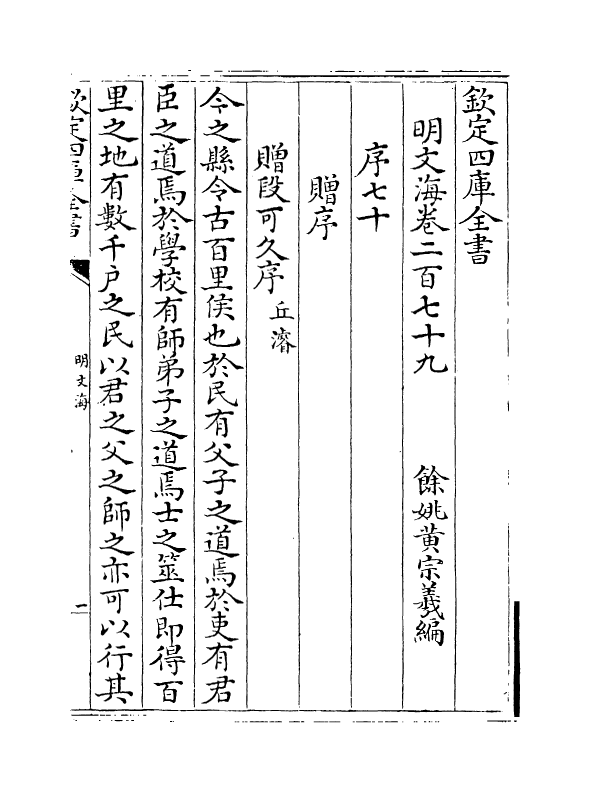 欽定四庫全書
明文海卷二百七十九　餘姚黃宗羲編
序七十
贈序
贈段可久序　丘濬
今之縣令古百里侯也於民有父子之道焉於吏有君
臣之道焉於學校有師弟子之道焉士之筮仕即得百
里之地有數千户之民以君之父之師之亦可以行其
欽定四庫全書
明文海